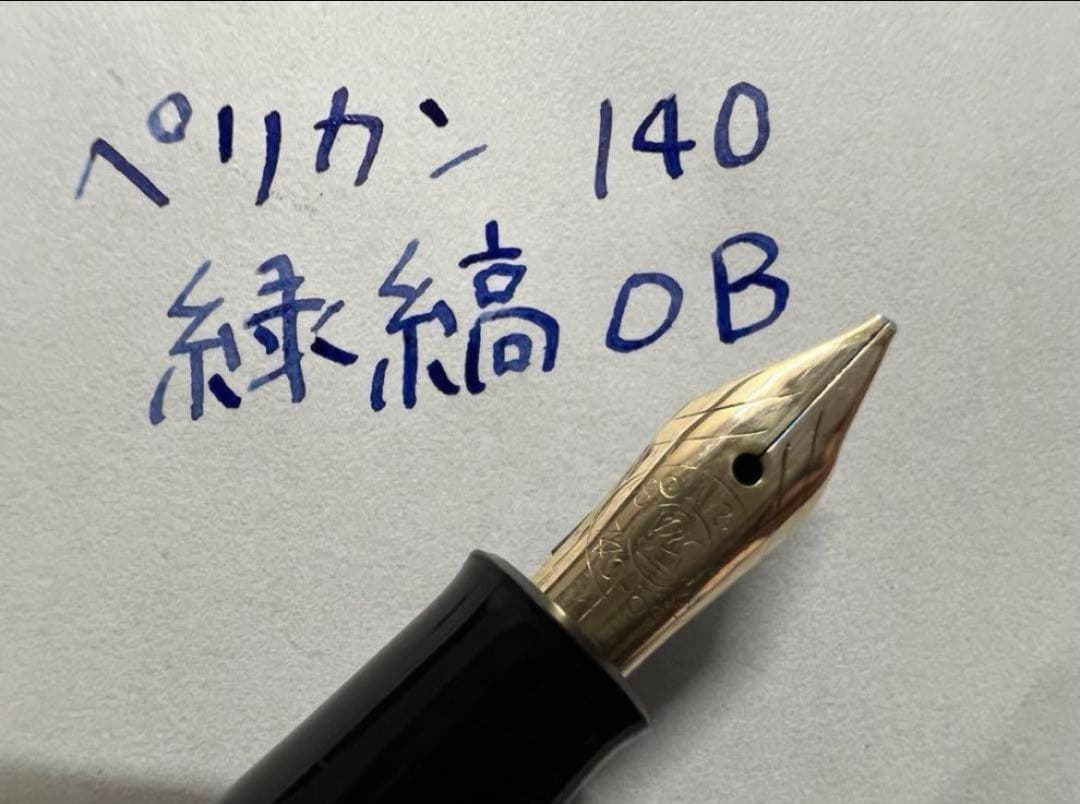 ペリカン 140
緑縞 OB